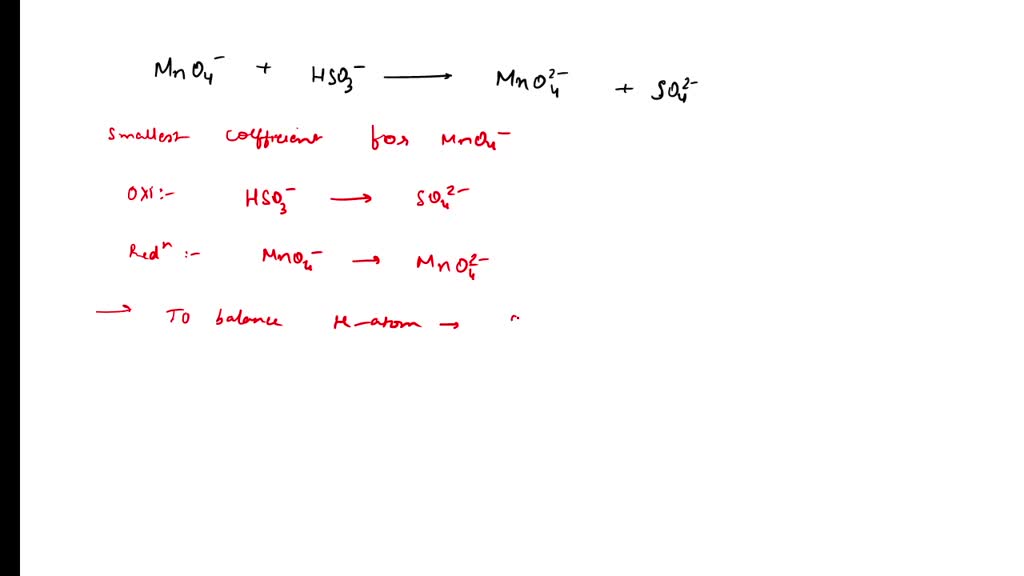 MnO₄⁻ + HSO₃⁻ ⟶ MnO₄²⁻ + SO₄²⁻
Smallest coefficient for MnO₄⁻
OXI :- HSO₃⁻ ⟶ SO₄²⁻
Redⁿ :- MnO₄⁻ ⟶ MnO₄²⁻
⟶ To balance H-atom →